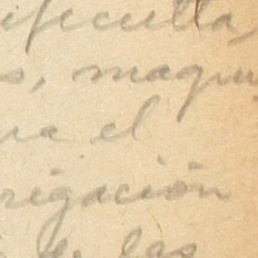 ificulta
s, maqui
ra el
rigación
de las